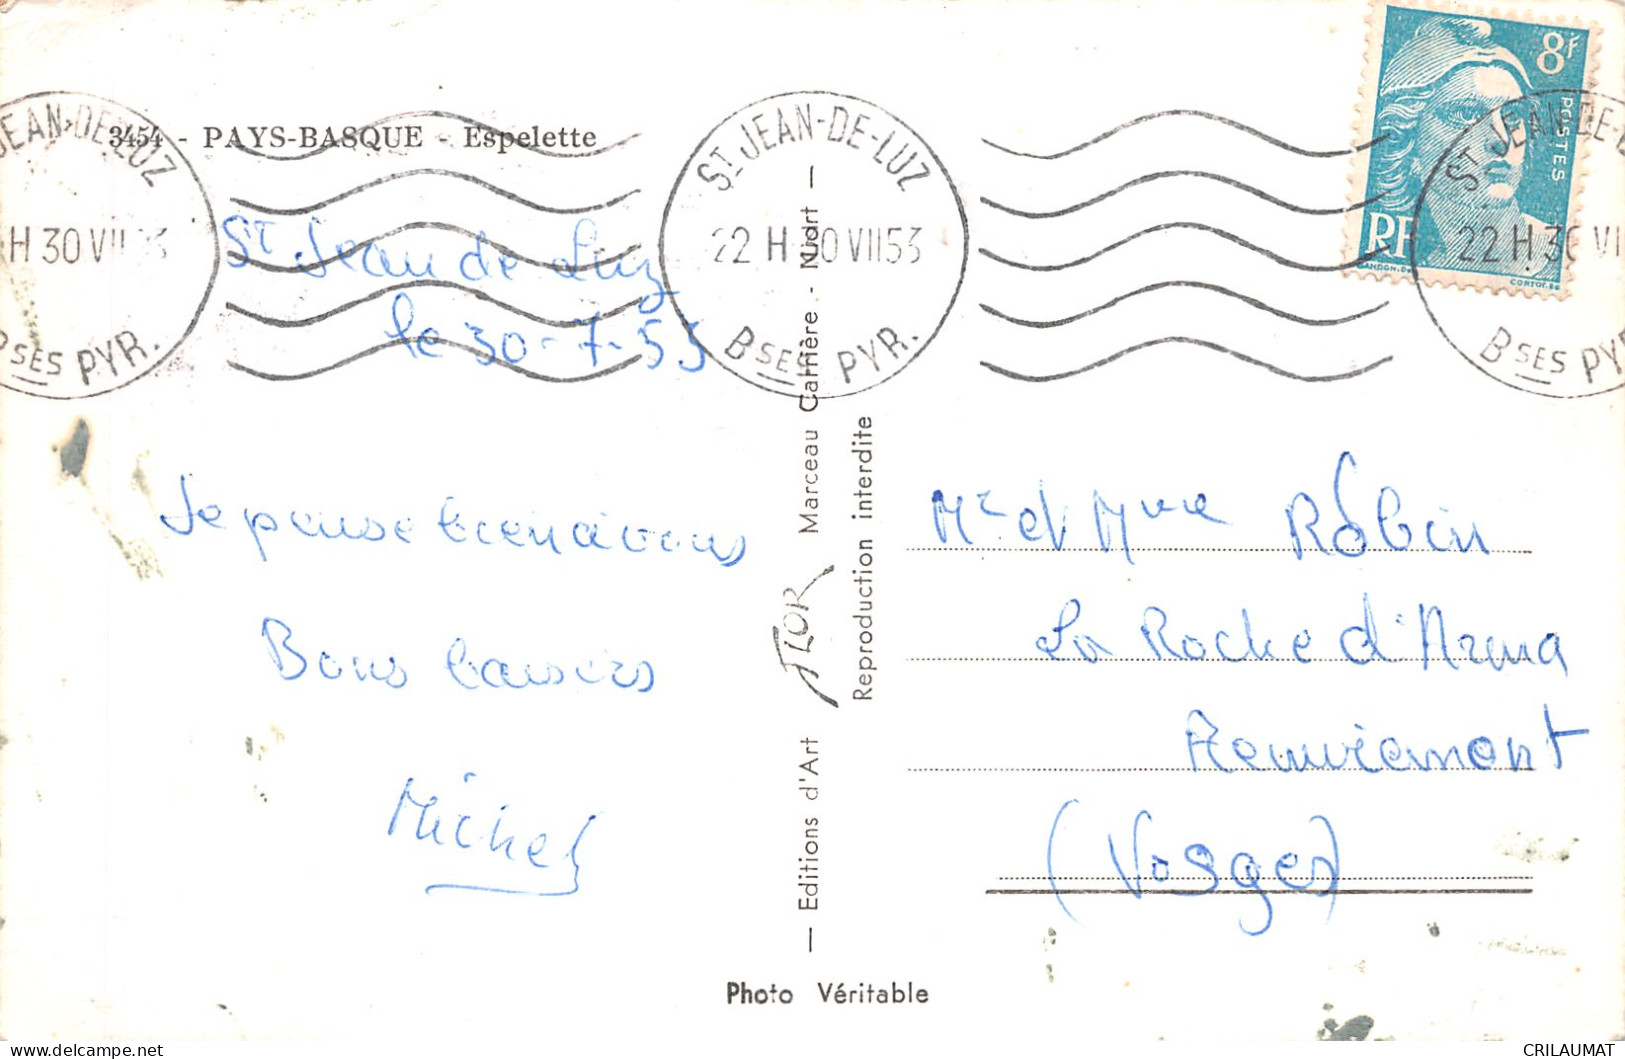 3454 - PAYS-BASQUE - Espelette
St Jean de Luz
le 30-7-53
Je pense bien à vous
Bons baisers
Michel
JEAN-DE-LUZ
H 30 VII 53
BSES PYR.
ST JEAN-DE-LUZ
22 H 30 VII 53
BSES PYR.
8F
POSTES
RF
GANDON.DEL
CORTOT.SC
ST JEAN-DE-L
22 H 30 VII
BSES PYR
— Editions d'Art FLOR Marceau Carrière - Niort —
Reproduction interdite
Mr et Mme Robin
La Roche d'Arma
Remiremont
(Vosges)
Photo Véritable
CRILAUMAT